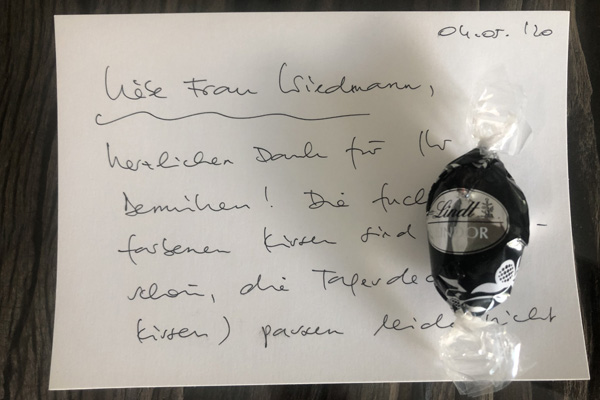 04.05.'20
Liebe Frau Wiedmann,
herzlichen Dank für Ihr
Bemühen! Die fuch
farbenen Kissen sind -
schön, die Tagesdec
Kissen) passen leider nicht
Lindt
LINDOR